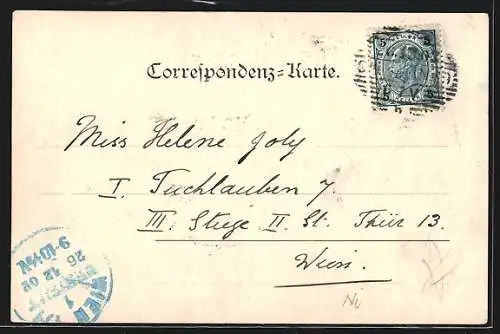 Correspondenz-Karte.
5 5
Miss Helene Joly
I. Tuchlauben 7.
III. Stiege II. St. Thür 13.
Wien.
WIEN
1
26 12 02
9-10½V